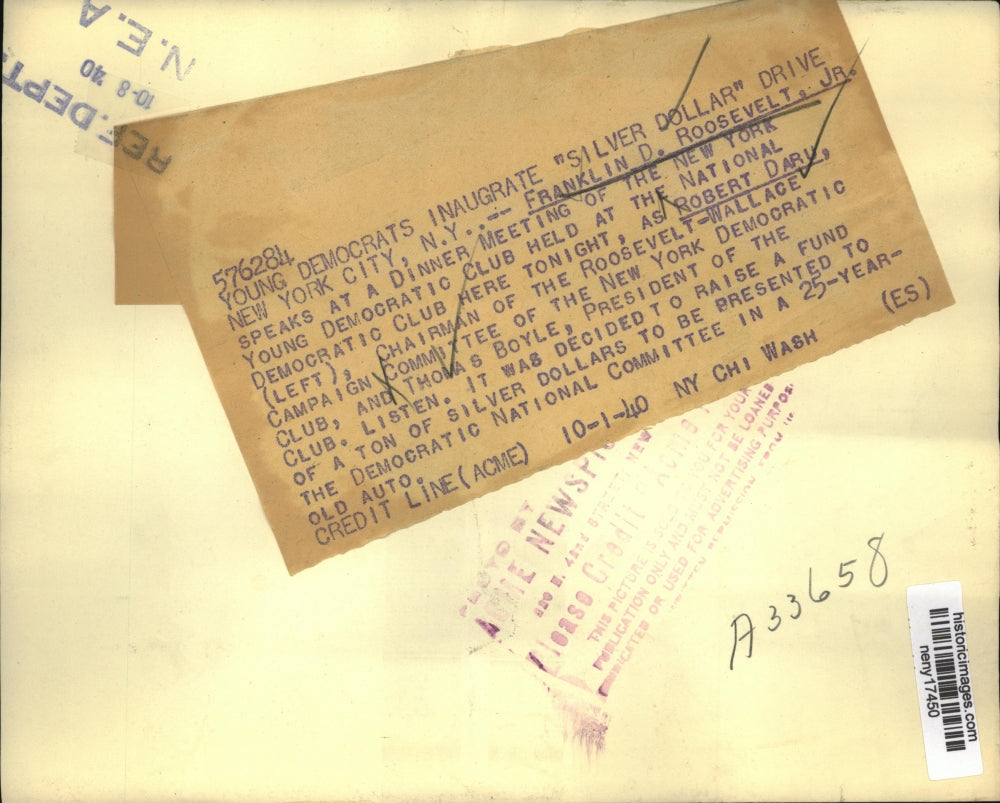 N.E.A
10-8 '40
REF. DEPT.
576284
YOUNG DEMOCRATS INAUGRATE "SILVER DOLLAR" DRIVE
NEW YORK CITY, N.Y..-- FRANKLIN D. ROOSEVELT, JR.
SPEAKS AT A DINNER MEETING OF THE NEW YORK
YOUNG DEMOCRATIC CLUB HELD AT THE NATIONAL
DEMOCRATIC CLUB HERE TONIGHT, AS ROBERT DARU,
(LEFT), CHAIRMAN OF THE ROOSEVELT-WALLACE
CAMPAIGN COMMITTEE OF THE NEW YORK DEMOCRATIC
CLUB, AND THOMAS BOYLE, PRESIDENT OF THE
CLUB. LISTEN. IT WAS DECIDED TO RAISE A FUND
OF A TON OF SILVER DOLLARS TO BE PRESENTED TO
THE DEMOCRATIC NATIONAL COMMITTEE IN A 25-YEAR-
OLD AUTO. (ES)
CREDIT LINE (ACME) 10-1-40 NY CHI WASH
PHOTO BY
ACME NEWSPIC
220 E. 42nd STREET, NEW
Please Credit "ACME
THIS PICTURE IS SOLD TO YOU FOR YOUR
PUBLICATION ONLY AND MUST NOT BE LOANED
OR USED FOR ADVERTISING PURPOS
A33658
historicimages.com
neny17450